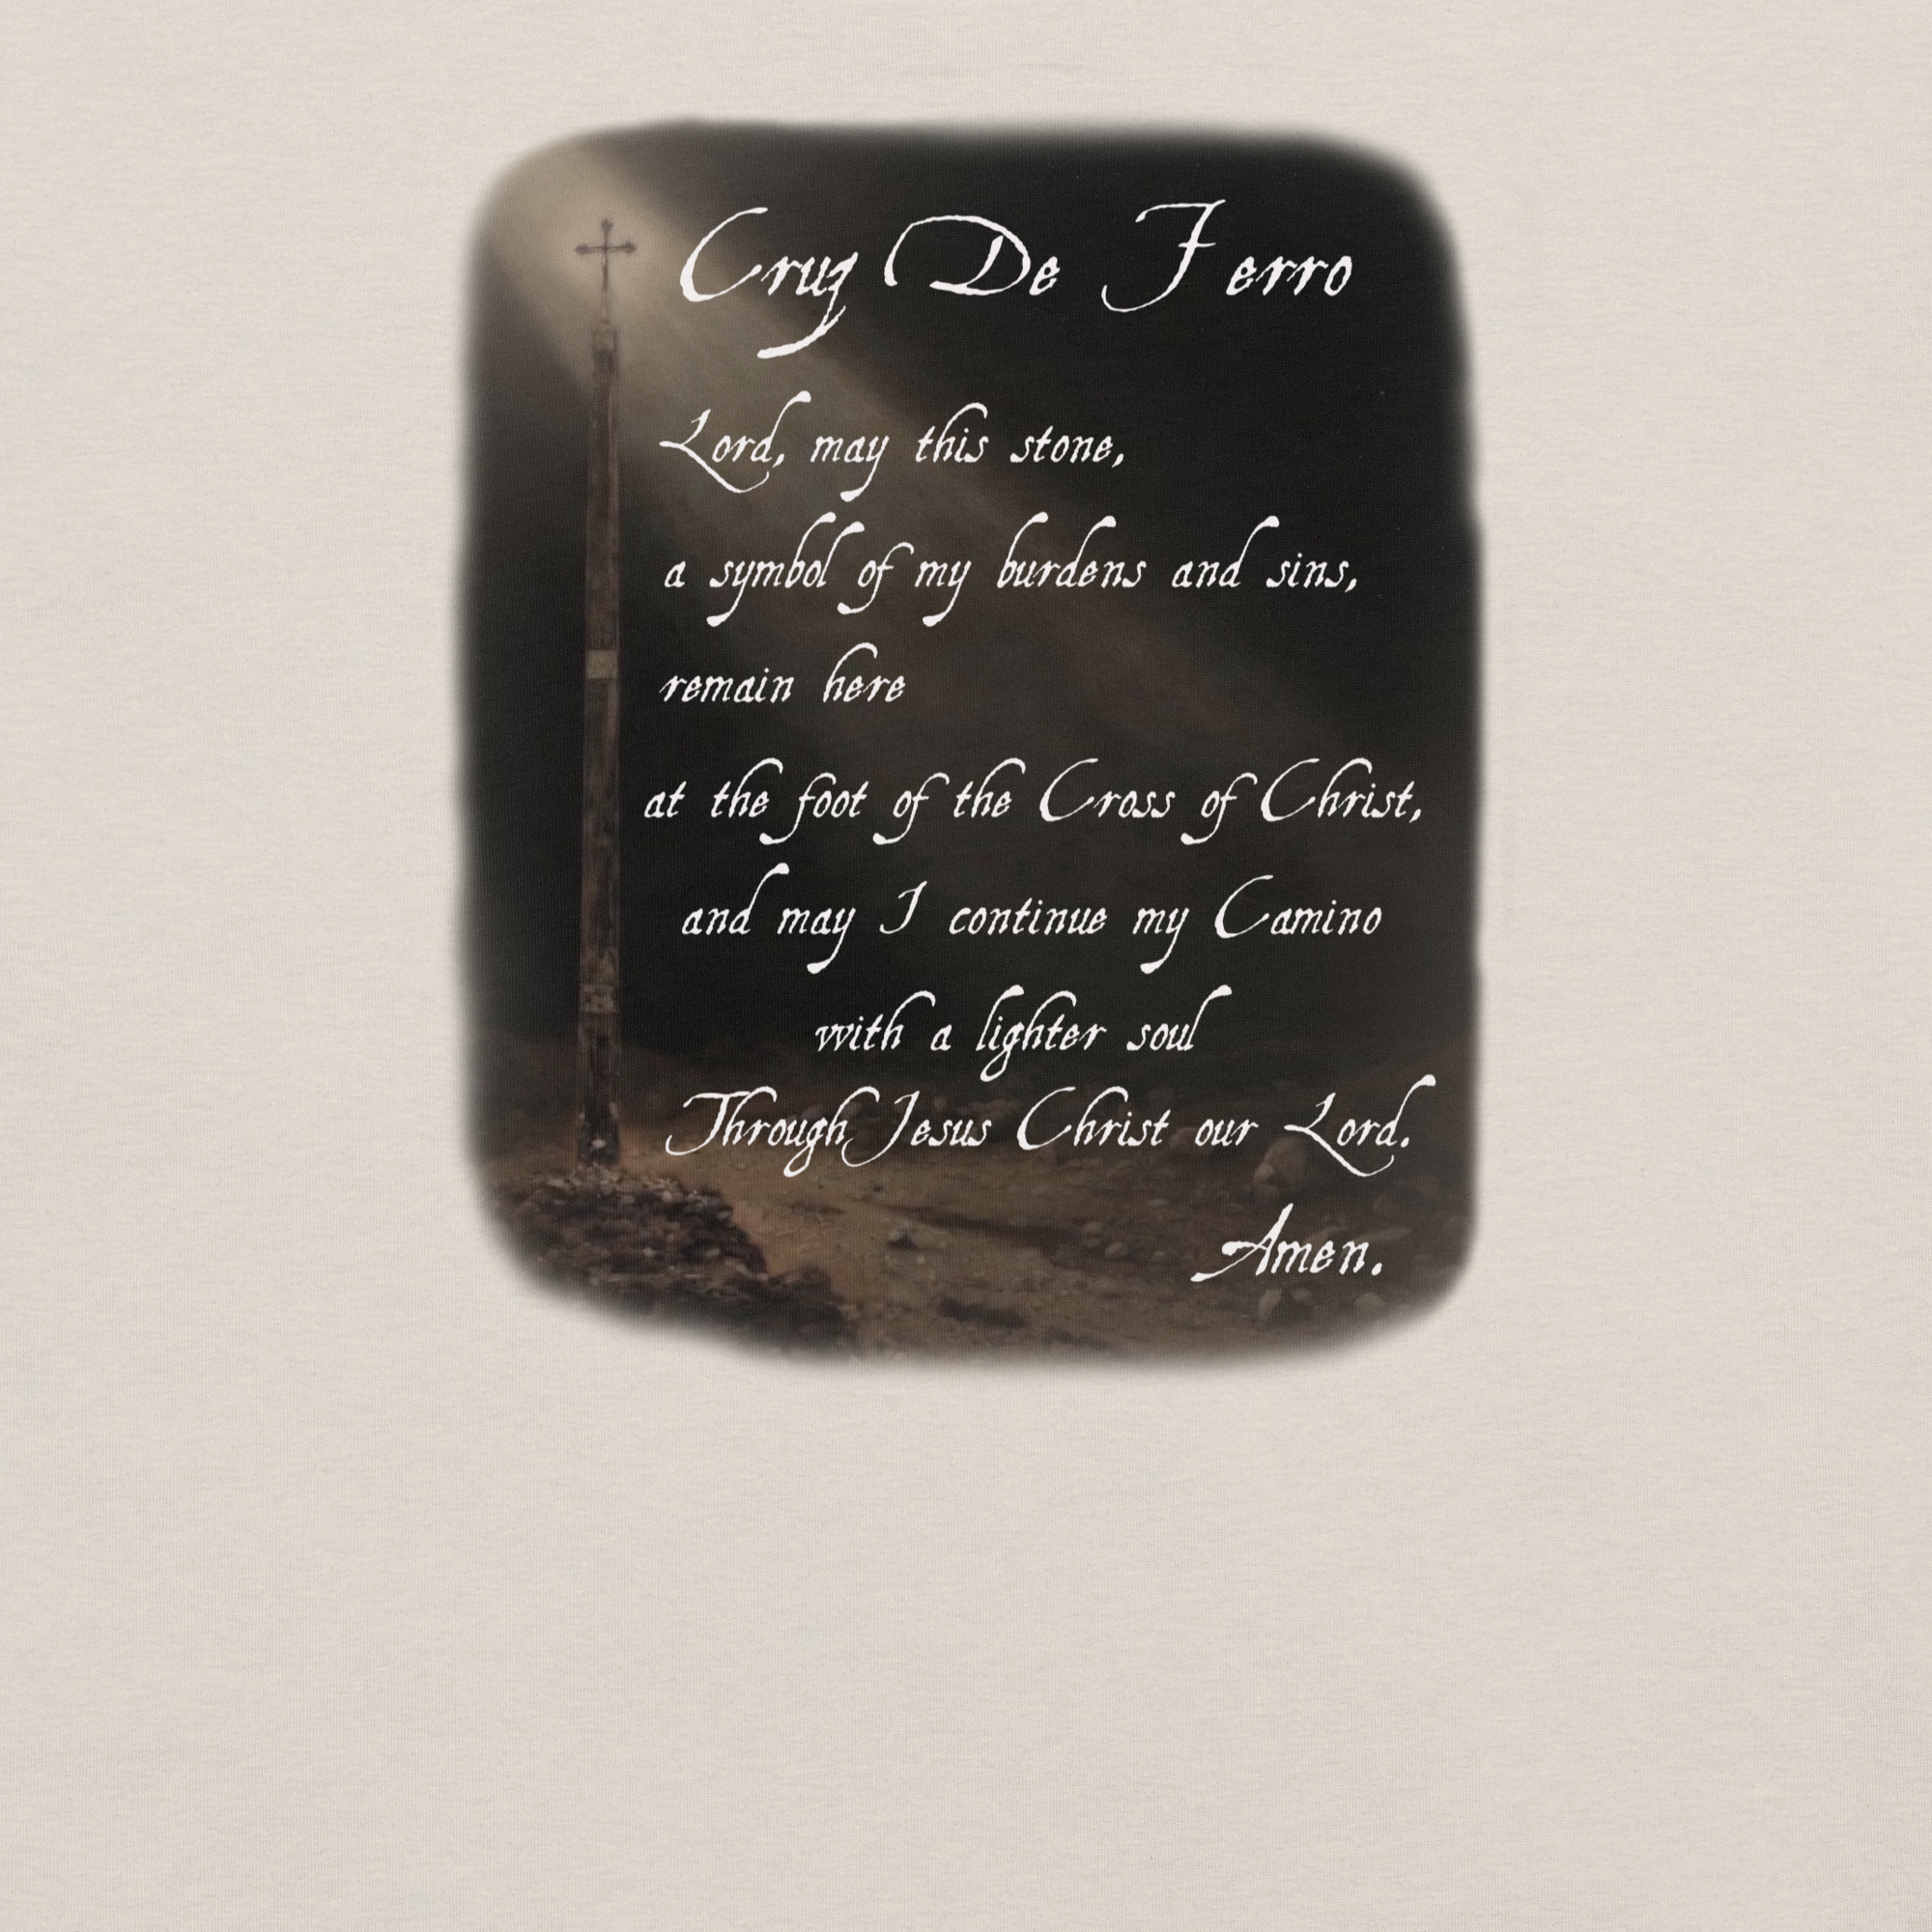 Cruz De Ferro
Lord, may this stone,
a symbol of my burdens and sins,
remain here
at the foot of the Cross of Christ,
and may I continue my Camino
with a lighter soul
Through Jesus Christ our Lord.
Amen.